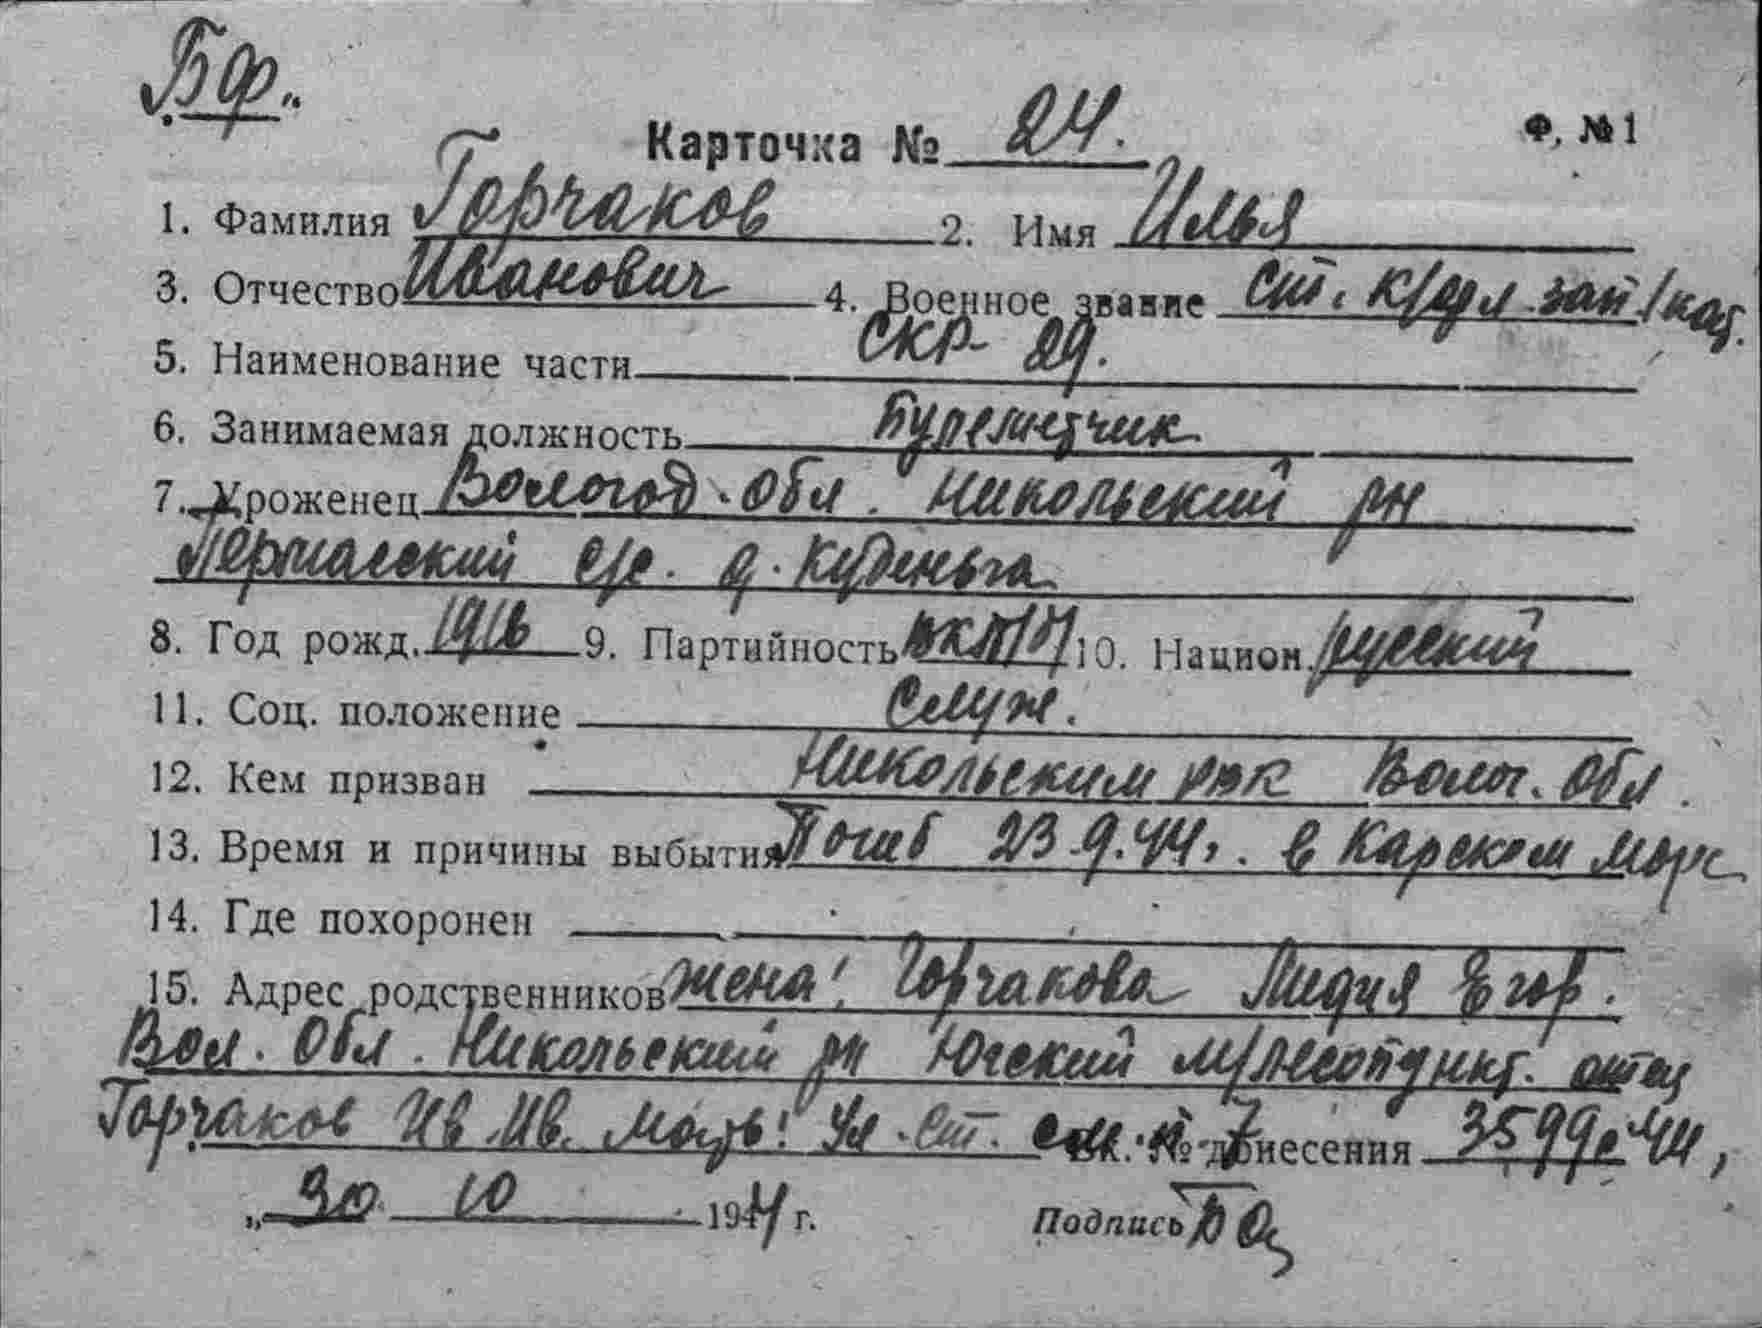 БФ.
Карточка № 24. Ф. №1
1. Фамилия Горчаков 2. Имя Илья
3. Отчество Иванович 4. Военное звание Ст. к/фл зап/кат.
5. Наименование части СКР-29.
6. Занимаемая должность
7. Уроженец Вологод. обл. Никольский рн
с/с. д. Куденьга
8. Год рожд. 1916 9. Партийность ВКП/б/ 10. Национ. русский
11. Соц. положение Служ.
12. Кем призван Никольским рвк Волог. обл.
13. Время и причины выбытия Погиб 23.9.44г. в Карском море
14. Где похоронен
15. Адрес родственников жена: Горчакова Лидия Егор.
Вол. обл. Никольский рн Югский м/лесопункт. отец
Горчаков Ив. Ив. Мать: Ул. Ст. № донесения
„30 10 1944 г. Подпись